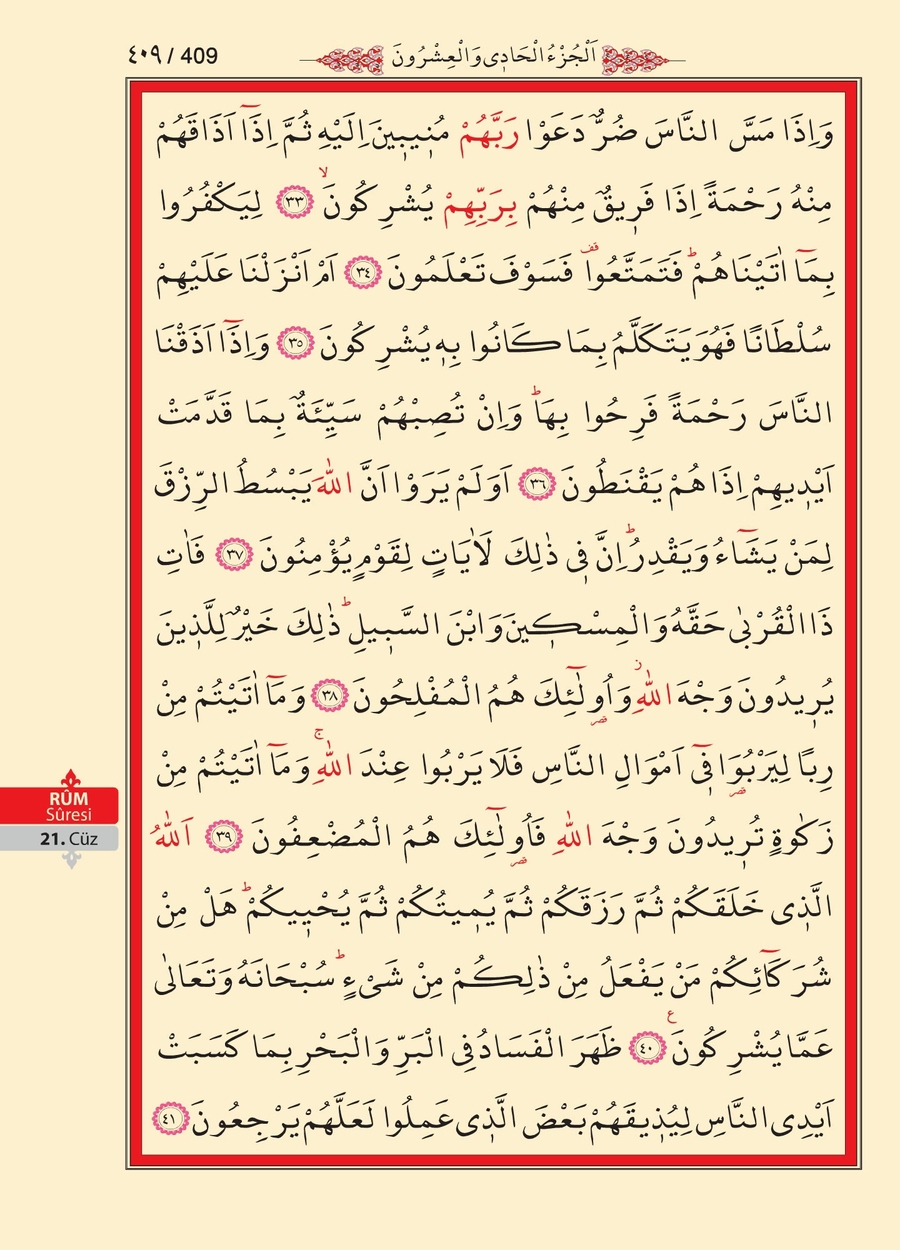 ٤٠٩ / 409
اَلْجُزْءُ الْحَادِي وَالْعِشْرُونَ
وَاِذَا مَسَّ النَّاسَ ضُرٌّ دَعَوْا رَبَّهُمْ مُنِيبِينَ اِلَيْهِ ثُمَّ اِذَٓا اَذَاقَهُمْ
مِنْهُ رَحْمَةً اِذَا فَرِيقٌ مِنْهُمْ بِرَبِّهِمْ يُشْرِكُونَۙ ﴿٣٣﴾ لِيَكْفُرُوا
بِمَٓا اٰتَيْنَاهُمْۜ فَتَمَتَّعُوا۠ فَسَوْفَ تَعْلَمُونَ ﴿٣٤﴾ اَمْ اَنْزَلْنَا عَلَيْهِمْ
سُلْطَانًا فَهُوَ يَتَكَلَّمُ بِمَا كَانُوا بِهِ يُشْرِكُونَ ﴿٣٥﴾ وَاِذَٓا اَذَقْنَا
النَّاسَ رَحْمَةً فَرِحُوا بِهَاۜ وَاِنْ تُصِبْهُمْ سَيِّئَةٌ بِمَا قَدَّمَتْ
اَيْدِيهِمْ اِذَا هُمْ يَقْنَطُونَ ﴿٣٦﴾ اَوَلَمْ يَرَوْا اَنَّ اللّٰهَ يَبْسُطُ الرِّزْقَ
لِمَنْ يَشَٓاءُ وَيَقْدِرُۜ اِنَّ فِي ذٰلِكَ لَاٰيَاتٍ لِقَوْمٍ يُؤْمِنُونَ ﴿٣٧﴾ فَاٰتِ
ذَا الْقُرْبٰى حَقَّهُ وَالْمِسْكِينَ وَابْنَ السَّبِيلِۜ ذٰلِكَ خَيْرٌ لِلَّذِينَ
يُرِيدُونَ وَجْهَ اللّٰهِۘ وَاُو۬لٰٓئِكَ هُمُ الْمُفْلِحُونَ ﴿٣٨﴾ وَمَٓا اٰتَيْتُمْ مِنْ
رِبًا لِيَرْبُوَا۬ فِٓي اَمْوَالِ النَّاسِ فَلَا يَرْبُوا عِنْدَ اللّٰهِۚ وَمَٓا اٰتَيْتُمْ مِنْ
زَكٰوةٍ تُرِيدُونَ وَجْهَ اللّٰهِ فَاُو۬لٰٓئِكَ هُمُ الْمُضْعِفُونَ ﴿٣٩﴾ اَللّٰهُ
الَّذِي خَلَقَكُمْ ثُمَّ رَزَقَكُمْ ثُمَّ يُمِيتُكُمْ ثُمَّ يُحْيِيكُمْۜ هَلْ مِنْ
شُرَكَٓائِكُمْ مَنْ يَفْعَلُ مِنْ ذٰلِكُمْ مِنْ شَيْءٍۜ سُبْحَانَهُ وَتَعَالٰى
عَمَّا يُشْرِكُونَ ﴿٤٠﴾ ظَهَرَ الْفَسَادُ فِي الْبَرِّ وَالْبَحْرِ بِمَا كَسَبَتْ
اَيْدِي النَّاسِ لِيُذِيقَهُمْ بَعْضَ الَّذِي عَمِلُوا لَعَلَّهُمْ يَرْجِعُونَ ﴿٤١﴾
RÛM
Sûresi
21. Cüz